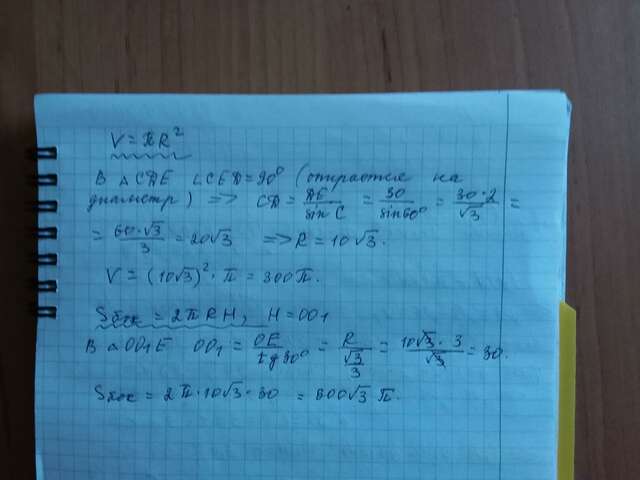 V = πR²
В △CДE ∠CEД = 90° (опирается на
диаметр) => CД = ДE/sin C = 30/sin60° = 30·2/√3 =
= 60·√3/3 = 20√3 => R = 10√3.
V = (10√3)²·π = 300π.
Sбок = 2πRH, H = OO₁
В △OO₁E OO₁ = OE/tg30° = R/(√3/3) = 10√3·3/√3 = 30.
Sбок = 2π·10√3·30 = 600√3 π.